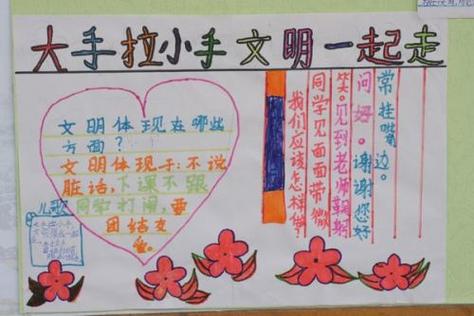 大手拉小手文明一起走
文明体现在哪些
方面？
文明体现于：不说
脏话，下课不跟
同学打闹，要
团结友
爱。
儿歌
我们应该怎样做
同学见面面带微
笑。见到老师鞠躬
问好。谢谢您好
常挂嘴边。